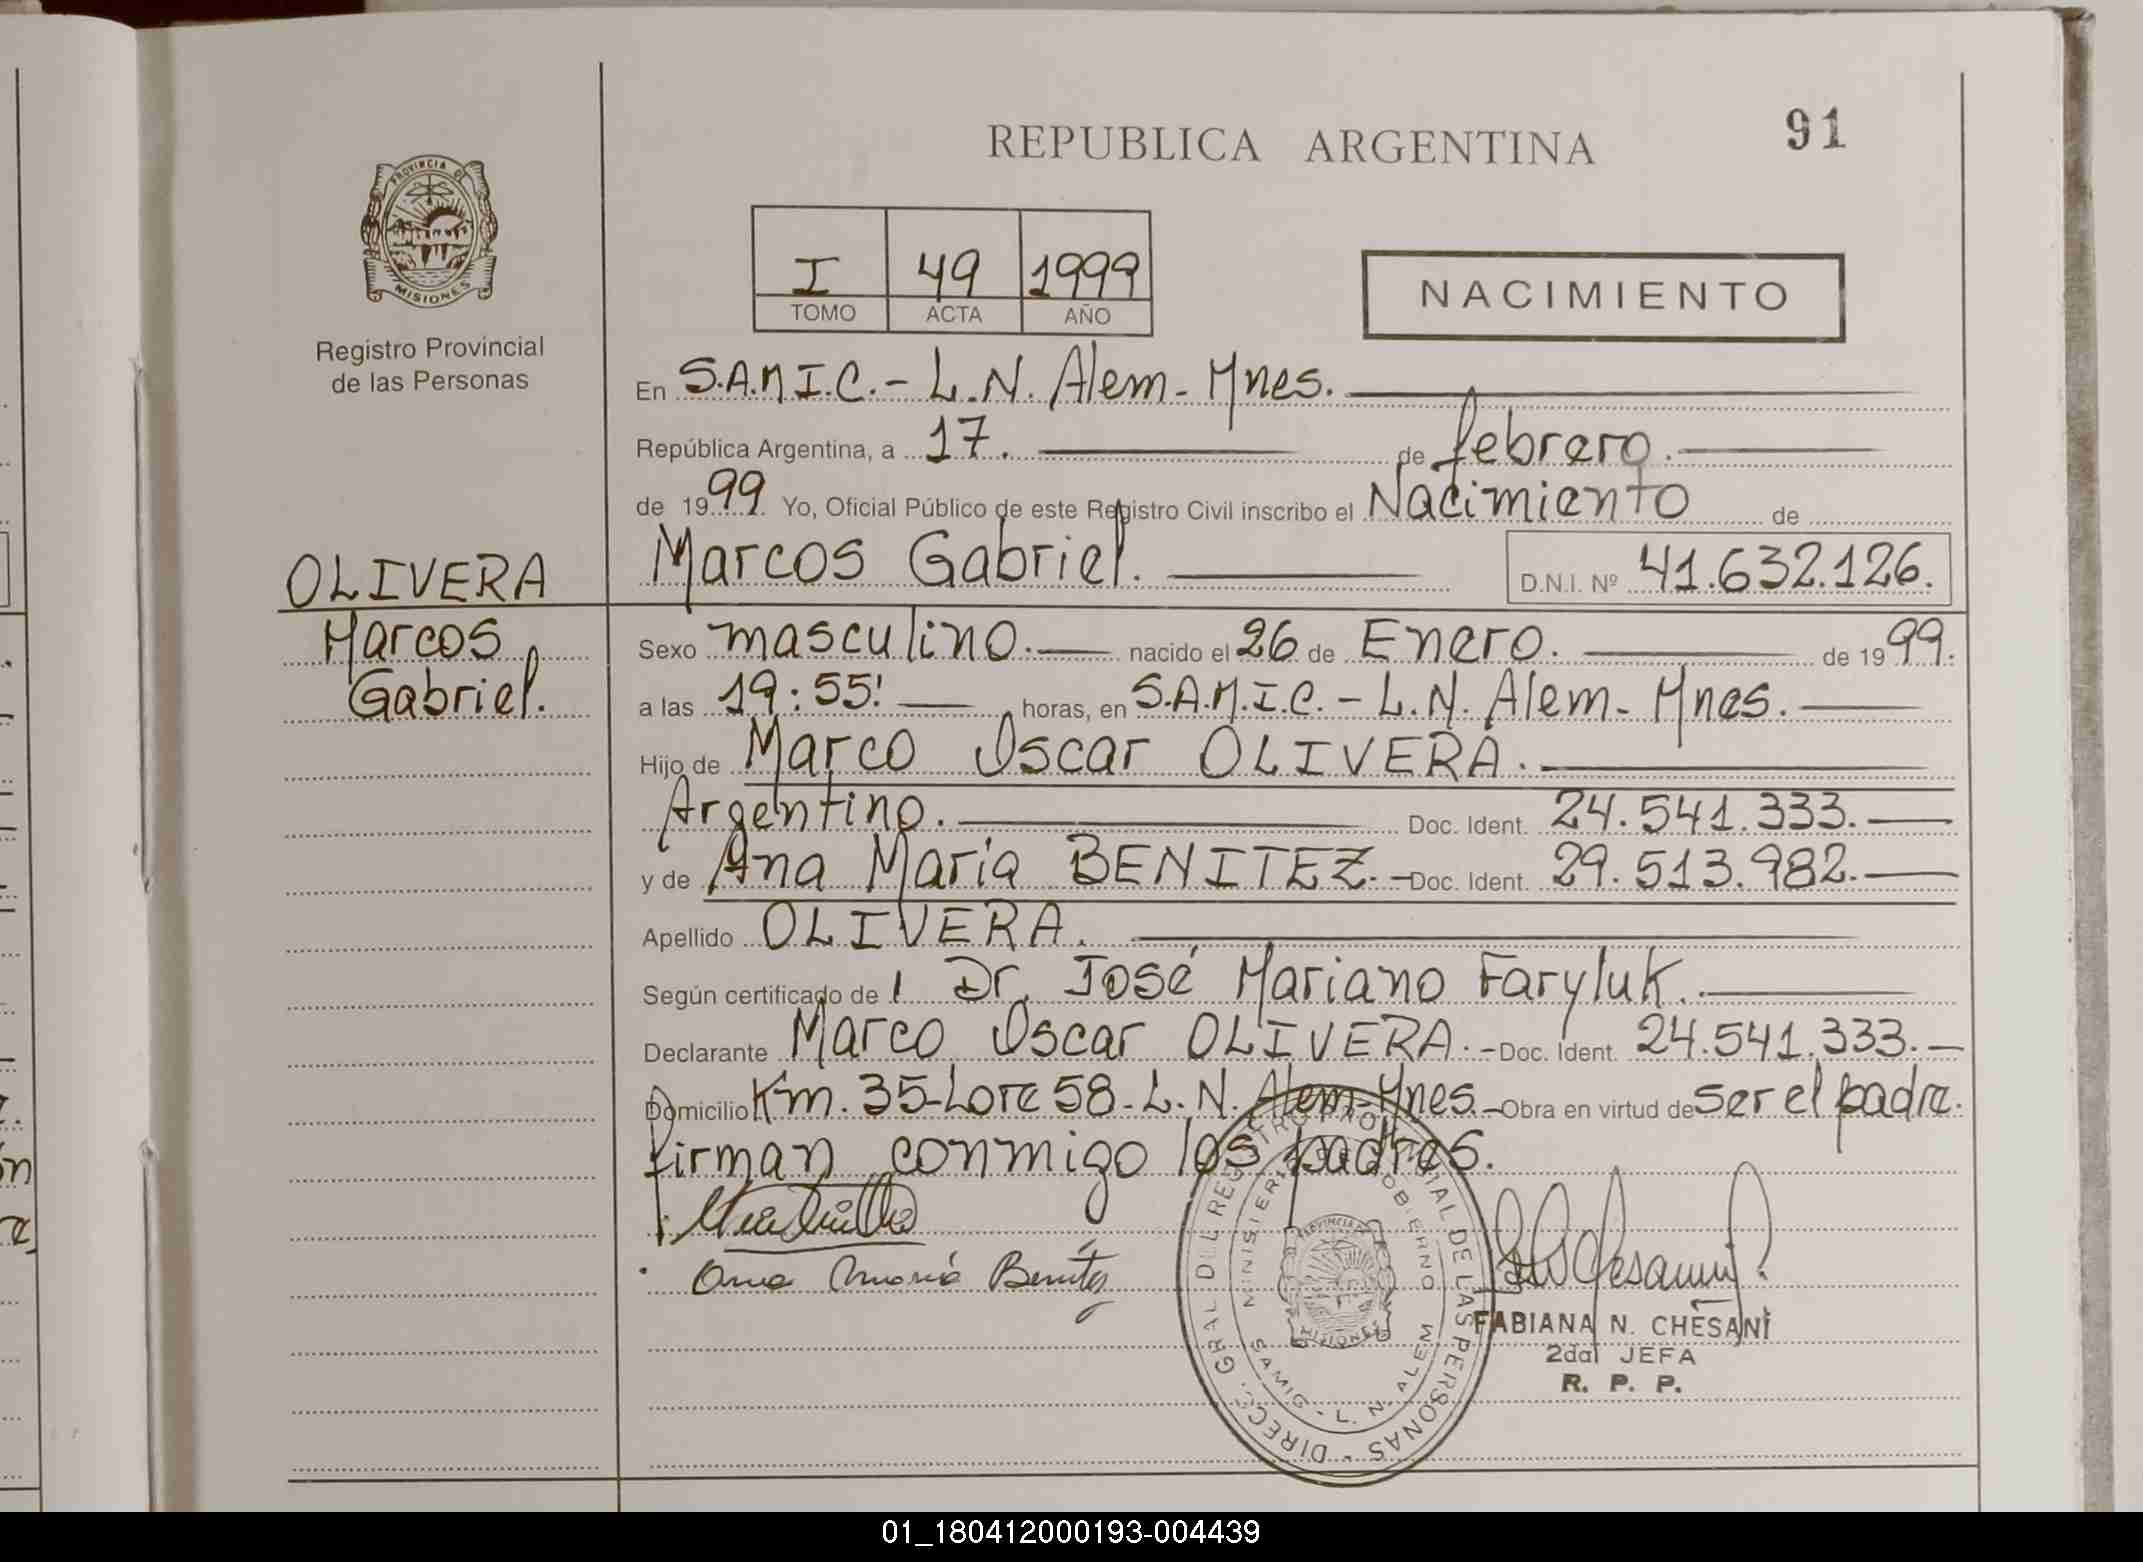 REPUBLICA ARGENTINA
91
PROVINCIA DE
MISIONES
Registro Provincial
de las Personas
I 49 1999
TOMO ACTA AÑO
NACIMIENTO
En S.A.M.I.C.- L.N. Alem- Mnes.
República Argentina, a 17. de febrero.
de 1999 Yo, Oficial Público de este Registro Civil inscribo el Nacimiento de
OLIVERA
Marcos
Gabriel.
Marcos Gabriel. D.N.I. Nº 41.632.126.
Sexo masculino. nacido el 26 de Enero. de 1999.
a las 19:55! horas, en S.A.M.I.C.- L.N. Alem- Mnes.
Hijo de Marco Oscar OLIVERA.
Argentino. Doc. Ident. 24.541.333.
y de Ana María BENITEZ.- Doc. Ident. 29.513.982.
Apellido OLIVERA.
Según certificado de l Dr. José Mariano Faryluk.
Declarante Marco Oscar OLIVERA.- Doc. Ident. 24.541.333.
Domicilio Km. 35-Lote 58-L.N. Alem-Mnes.- Obra en virtud de ser el padre.
firman conmigo los padres.
Ana María Benitez
DIRECC. GRAL DEL REGISTRO PROVINCIAL DE LAS PERSONAS
MINISTERIO DE GOBIERNO
SAMIC - L. N. ALEM
PROVINCIA DE
MISIONES
FABIANA N. CHESANI
2da JEFA
R. P. P.
01_180412000193-004439